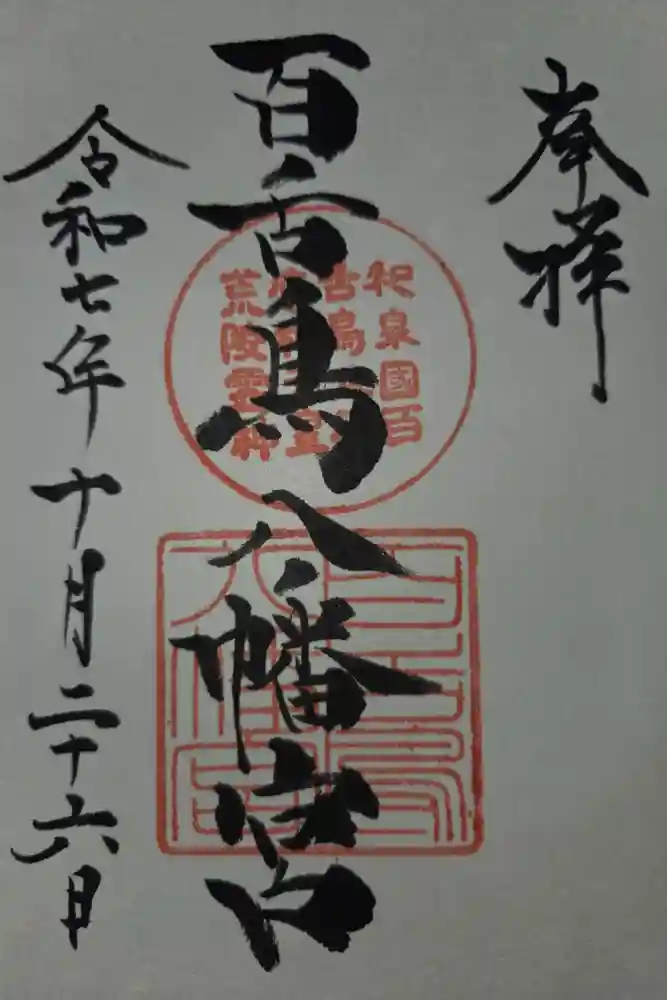 奉拝
百舌鳥八幡宮
和泉國百
舌鳥
百舌鳥
八幡宮
令和七年十月二十六日